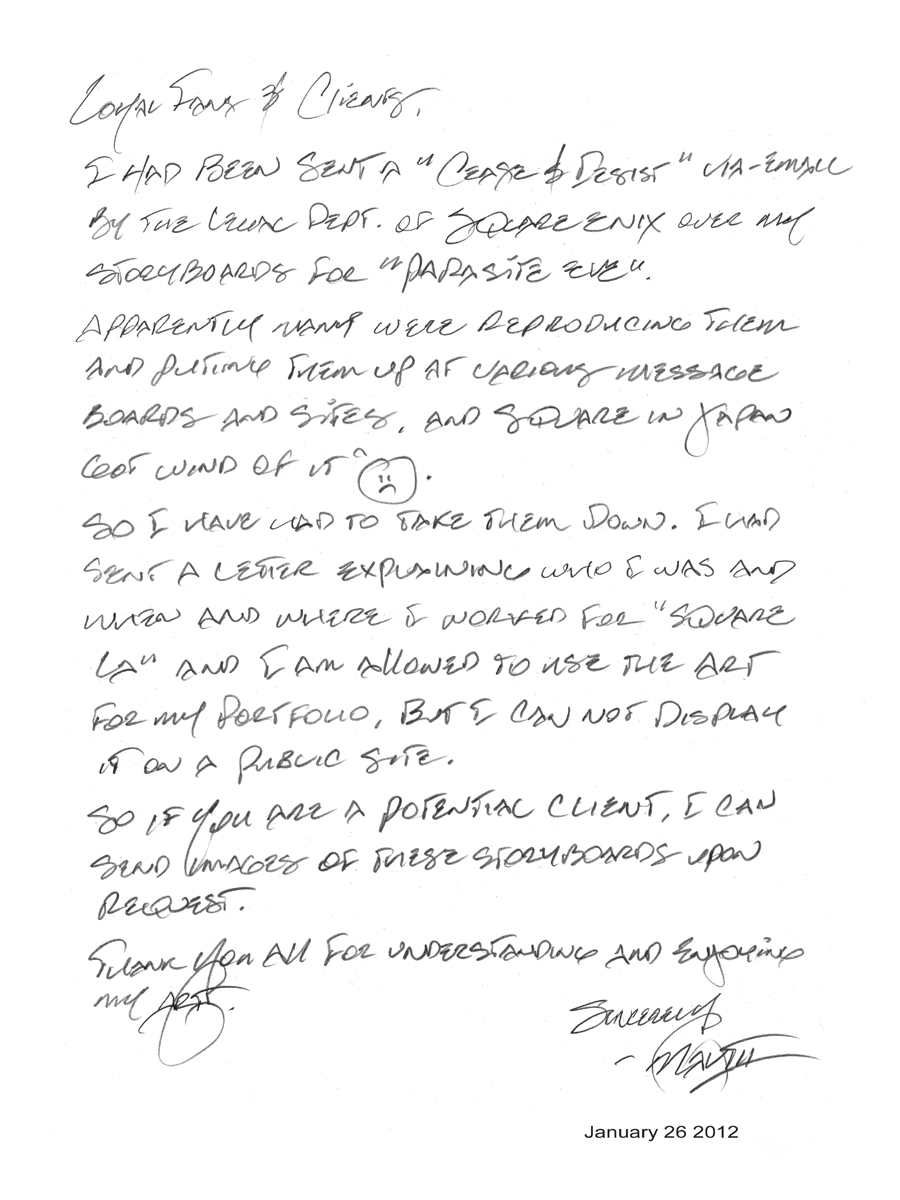 Loyal Fans & Clients,
I HAD BEEN SENT A "CEASE & DESIST" VIA-EMAIL
BY THE LEGAL DEPT. OF SQUARE ENIX OVER MY
STORYBOARDS FOR "PARASITE EVE".
APPARENTLY MANY WERE REPRODUCING THEM
AND PUTTING THEM UP AT VARIOUS MESSAGE
BOARDS AND SITES, AND SQUARE IN JAPAN
GOT WIND OF IT ☹.
SO I HAVE HAD TO TAKE THEM DOWN. I HAD
SENT A LETTER EXPLAINING WHO I WAS AND
WHEN AND WHERE I WORKED FOR "SQUARE
LA" AND I AM ALLOWED TO USE THE ART
FOR MY PORTFOLIO, BUT I CAN NOT DISPLAY
IT ON A PUBLIC SITE.
SO IF YOU ARE A POTENTIAL CLIENT, I CAN
SEND IMAGES OF THESE STORYBOARDS UPON
REQUEST.
THANK YOU ALL FOR UNDERSTANDING AND ENJOYING
MY ART.
SINCERELY
January 26 2012